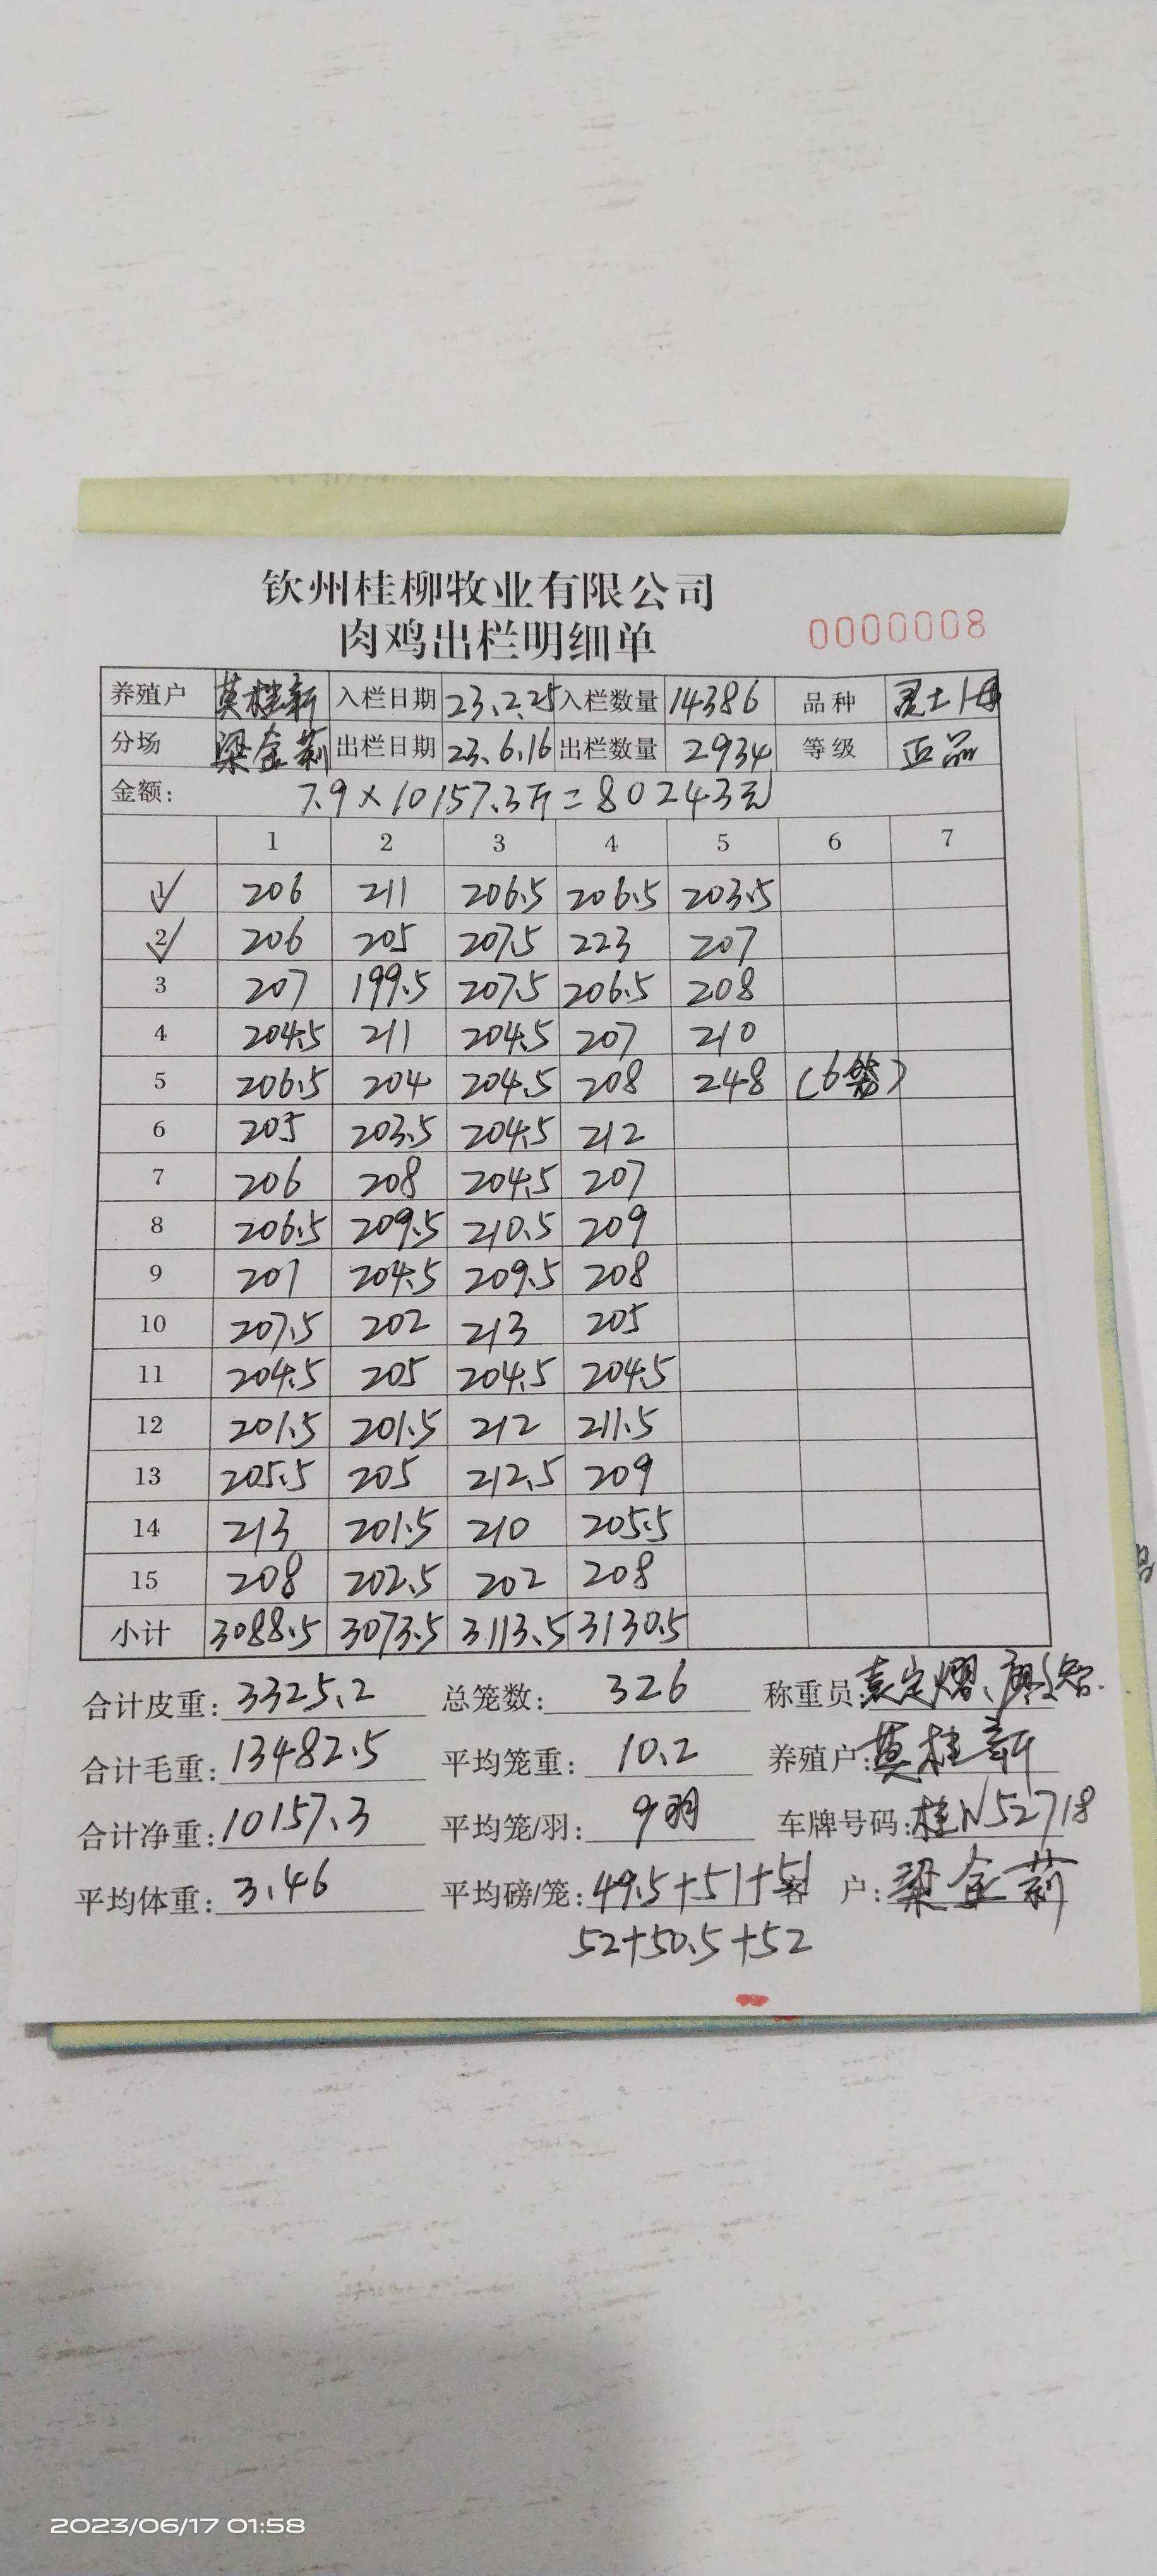 钦州桂柳牧业有限公司
肉鸡出栏明细单
0000008
养殖户 莫桂新 入栏日期 23.2.25 入栏数量 14386 品种 灵土1母
分场 梁金莉 出栏日期 23.6.16 出栏数量 2934 等级 正品
金额: 7.9×10157.3斤=80243元
1 2 3 4 5 6 7
1 206 211 206.5 206.5 203.5
2 206 205 207.5 223 207
3 207 199.5 207.5 206.5 208
4 204.5 211 204.5 207 210
5 206.5 204 204.5 208 248 (6笼)
6 205 203.5 204.5 212
7 206 208 204.5 207
8 206.5 209.5 210.5 209
9 207 204.5 209.5 208
10 207.5 202 213 205
11 204.5 205 204.5 204.5
12 201.5 201.5 212 211.5
13 205.5 205 212.5 209
14 213 201.5 210 205.5
15 208 202.5 202 208
小计 3088.5 3073.5 3113.5 3130.5
合计皮重: 3325.2 总笼数: 326 称重员: 袁定熠、
合计毛重: 13482.5 平均笼重: 10.2 养殖户: 莫桂新
合计净重: 10157.3 平均笼/羽: 9羽 车牌号码: 桂N52718
平均体重: 3.46 平均磅/笼: 49.5+51+51 客户: 梁金莉
52+50.5+52
2023/06/17 01:58